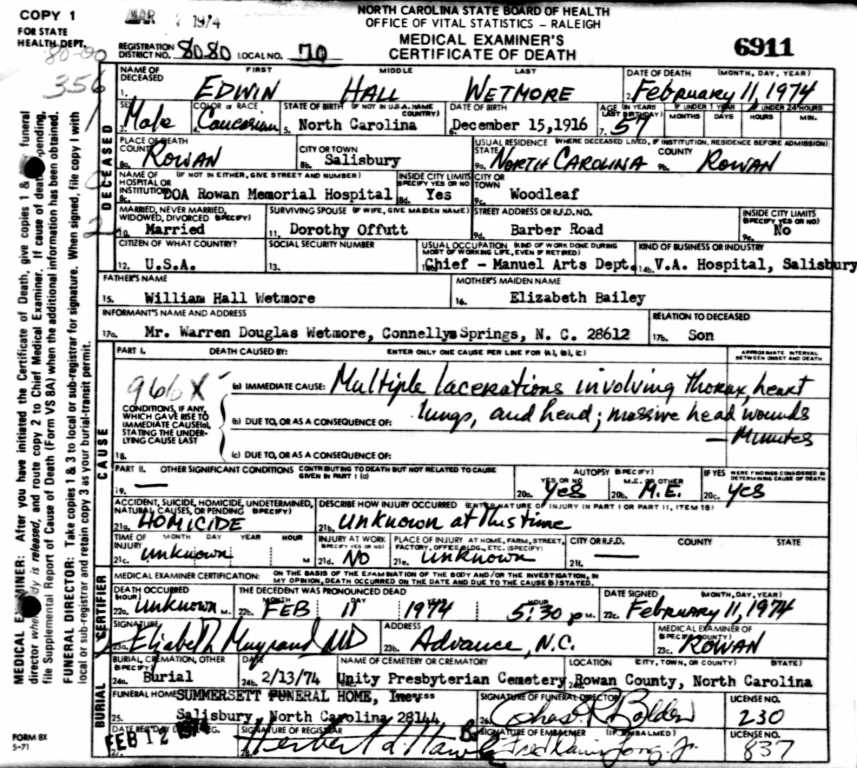 COPY 1
FOR STATE
HEALTH DEPT.
MAR 1974
NORTH CAROLINA STATE BOARD OF HEALTH
OFFICE OF VITAL STATISTICS – RALEIGH
MEDICAL EXAMINER'S
CERTIFICATE OF DEATH
6911
REGISTRATION DISTRICT NO. 8080 LOCAL NO. 70
80-90
356
1. NAME OF DECEASED FIRST MIDDLE LAST
EDWIN HALL WETMORE
2. DATE OF DEATH (MONTH, DAY, YEAR)
February 11, 1974
SEX COLOR or RACE STATE OF BIRTH (IF NOT IN U.S.A. NAME COUNTRY) DATE OF BIRTH AGE (IN YEARS LAST BIRTHDAY) IF UNDER 1 YEAR IF UNDER 24 HOURS
MONTHS DAYS HOURS MIN.
Male Caucasian 5. North Carolina December 15,1916 7. 57
PLACE OF DEATH COUNTY CITY OR TOWN USUAL RESIDENCE (WHERE DECEASED LIVED, IF INSTITUTION, RESIDENCE BEFORE ADMISSION)
STATE COUNTY
8a. ROWAN 8b. Salisbury 9a. NORTH CAROLINA 9b. ROWAN
NAME OF HOSPITAL OR INSTITUTION (IF NOT IN EITHER, GIVE STREET AND NUMBER) INSIDE CITY LIMITS (SPECIFY YES OR NO) CITY OR TOWN
8c. DOA Rowan Memorial Hospital 8d. Yes 9c. Woodleaf
MARRIED, NEVER MARRIED, WIDOWED, DIVORCED (SPECIFY) SURVIVING SPOUSE (IF WIFE, GIVE MAIDEN NAME) STREET ADDRESS OR R.F.D. NO. INSIDE CITY LIMITS (SPECIFY YES OR NO)
10. Married 11. Dorothy Offutt 9d. Barber Road No
CITIZEN OF WHAT COUNTRY? SOCIAL SECURITY NUMBER USUAL OCCUPATION (KIND OF WORK DONE DURING MOST OF WORKING LIFE, EVEN IF RETIRED) KIND OF BUSINESS OR INDUSTRY
12. U.S.A. 13. Chief - Manuel Arts Dept. 14b. V.A. Hospital, Salisbury
FATHER'S NAME MOTHER'S MAIDEN NAME
15. William Hall Wetmore 16. Elizabeth Bailey
INFORMANT'S NAME AND ADDRESS RELATION TO DECEASED
17a. Mr. Warren Douglas Wetmore, Connellys Springs, N. C. 28612 17b. Son
PART I. DEATH CAUSED BY: ENTER ONLY ONE CAUSE PER LINE FOR (a), (b), (c) APPROXIMATE INTERVAL BETWEEN ONSET AND DEATH
966X
(a) IMMEDIATE CAUSE: Multiple lacerations involving thorax, heart
lungs, and head; massive head wounds
CONDITIONS, IF ANY, WHICH GAVE RISE TO IMMEDIATE CAUSE(a), STATING THE UNDERLYING CAUSE LAST
(b) DUE TO, OR AS A CONSEQUENCE OF:
– Minutes
18. (c) DUE TO, OR AS A CONSEQUENCE OF:
PART II. OTHER SIGNIFICANT CONDITIONS CONTRIBUTING TO DEATH BUT NOT RELATED TO CAUSE GIVEN IN PART I (a) AUTOPSY (SPECIFY) YES OR NO M.E. OR OTHER IF YES WERE FINDINGS CONSIDERED IN DETERMINING CAUSE OF DEATH
19. — 20a. Yes 20b. M.E. 20c. Yes
ACCIDENT, SUICIDE, HOMICIDE, UNDETERMINED, NATURAL CAUSES, OR PENDING (SPECIFY) DESCRIBE HOW INJURY OCCURRED (ENTER NATURE OF INJURY IN PART I OR PART II, ITEM 18)
21a. HOMICIDE 21b. Unknown at this time
TIME OF INJURY MONTH DAY YEAR HOUR INJURY AT WORK (SPECIFY YES OR NO) PLACE OF INJURY AT HOME, FARM, STREET, FACTORY, OFFICE BLDG., ETC. (SPECIFY) CITY OR R.F.D. COUNTY STATE
21c. Unknown M 21d. No 21e. Unknown 21f. —
MEDICAL EXAMINER CERTIFICATION: ON THE BASIS OF THE EXAMINATION OF THE BODY AND/OR THE INVESTIGATION, IN MY OPINION, DEATH OCCURRED ON THE DATE AND DUE TO THE CAUSE (S) STATED.
DEATH OCCURRED (HOUR) THE DECEDENT WAS PRONOUNCED DEAD MONTH DAY YEAR HOUR DATE SIGNED (MONTH, DAY, YEAR)
22a. Unknown M. 22b. FEB 11 1974 5:30 P M. 22c. February 11, 1974
SIGNATURE ADDRESS MEDICAL EXAMINER OF (SPECIFY COUNTY)
23a. Elizabeth MD 23b. Advance, N.C. 23c. ROWAN
BURIAL, CREMATION, OTHER (SPECIFY) DATE NAME OF CEMETERY OR CREMATORY LOCATION (CITY, TOWN, OR COUNTY) (STATE)
24a. Burial 24b. 2/13/74 Unity Presbyterian Cemetery 24d. Rowan County, North Carolina
FUNERAL HOME SUMMERSETT FUNERAL HOME, Inc. SIGNATURE OF FUNERAL DIRECTOR LICENSE NO.
25. Salisbury, North Carolina 28144 26. Chas. 230
DATE REC'D BY LOCAL REG. SIGNATURE OF REGISTRAR SIGNATURE OF EMBALMER (IF EMBALMED) LICENSE NO.
FEB 12 1974 Herbert Fred Jr. 837
DECEASED
CAUSE
CERTIFIER
BURIAL
MEDICAL EXAMINER: After you have initiated the Certificate of Death, give copies 1 & funeral
director when body is released, and route copy 2 to Chief Medical Examiner. If cause of death pending,
file Supplemental Report of Cause of Death (Form VS 8A) when the additional information has been obtained.
FUNERAL DIRECTOR: Take copies 1 & 3 to local or sub-registrar for signature. When signed, file copy 1 with
local or sub-registrar and retain copy 3 as your burial-transit permit.
FORM 8X
5-71